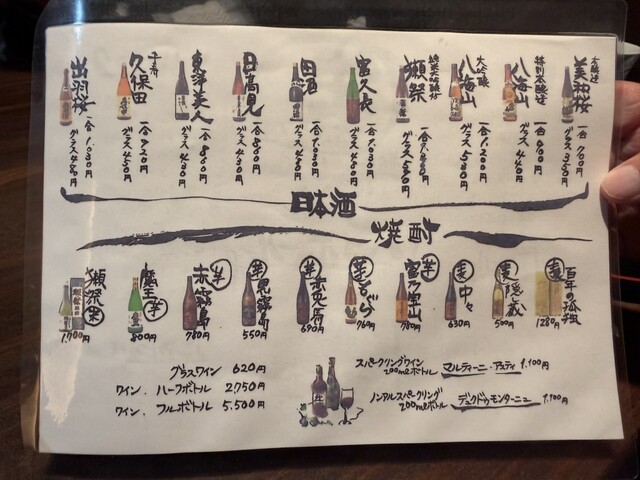 本醸造
美和桜
一合 700円
グラス 350円
特別本醸造
八海山
一合 900円
グラス 450円
大吟醸
八海山
一合 1.200円
グラス 580円
純米大吟醸45
獺祭
グラス 590円
富久長
一合 1.030円
グラス 480円
田酒
一合 1.030円
グラス 480円
日高見
一合 860円
グラス 430円
東洋美人
一合 860円
グラス 430円
千寿
久保田
一合 920円
グラス 450円
出羽桜
一合 1.030円
グラス 480円
日本酒
焼酎
百年の孤独
麦
1280円
隠し蔵
麦
500円
中々
麦
630円
富乃宝山
芋
780円
760円
赤兎馬
芋
690円
黒霧島
芋
550円
赤霧島
芋
780円
魔王
芋
800円
獺祭
1.700円
グラスワイン 620円
ワイン. ハーフボトル 2,750円
ワイン. フルボトル 5.500円
スパークリングワイン
200mlボトル マルティーニ・アスティ 1.100円
ノンアルスパークリング
200mlボトル デュクドゥモンターニュ 1.100円